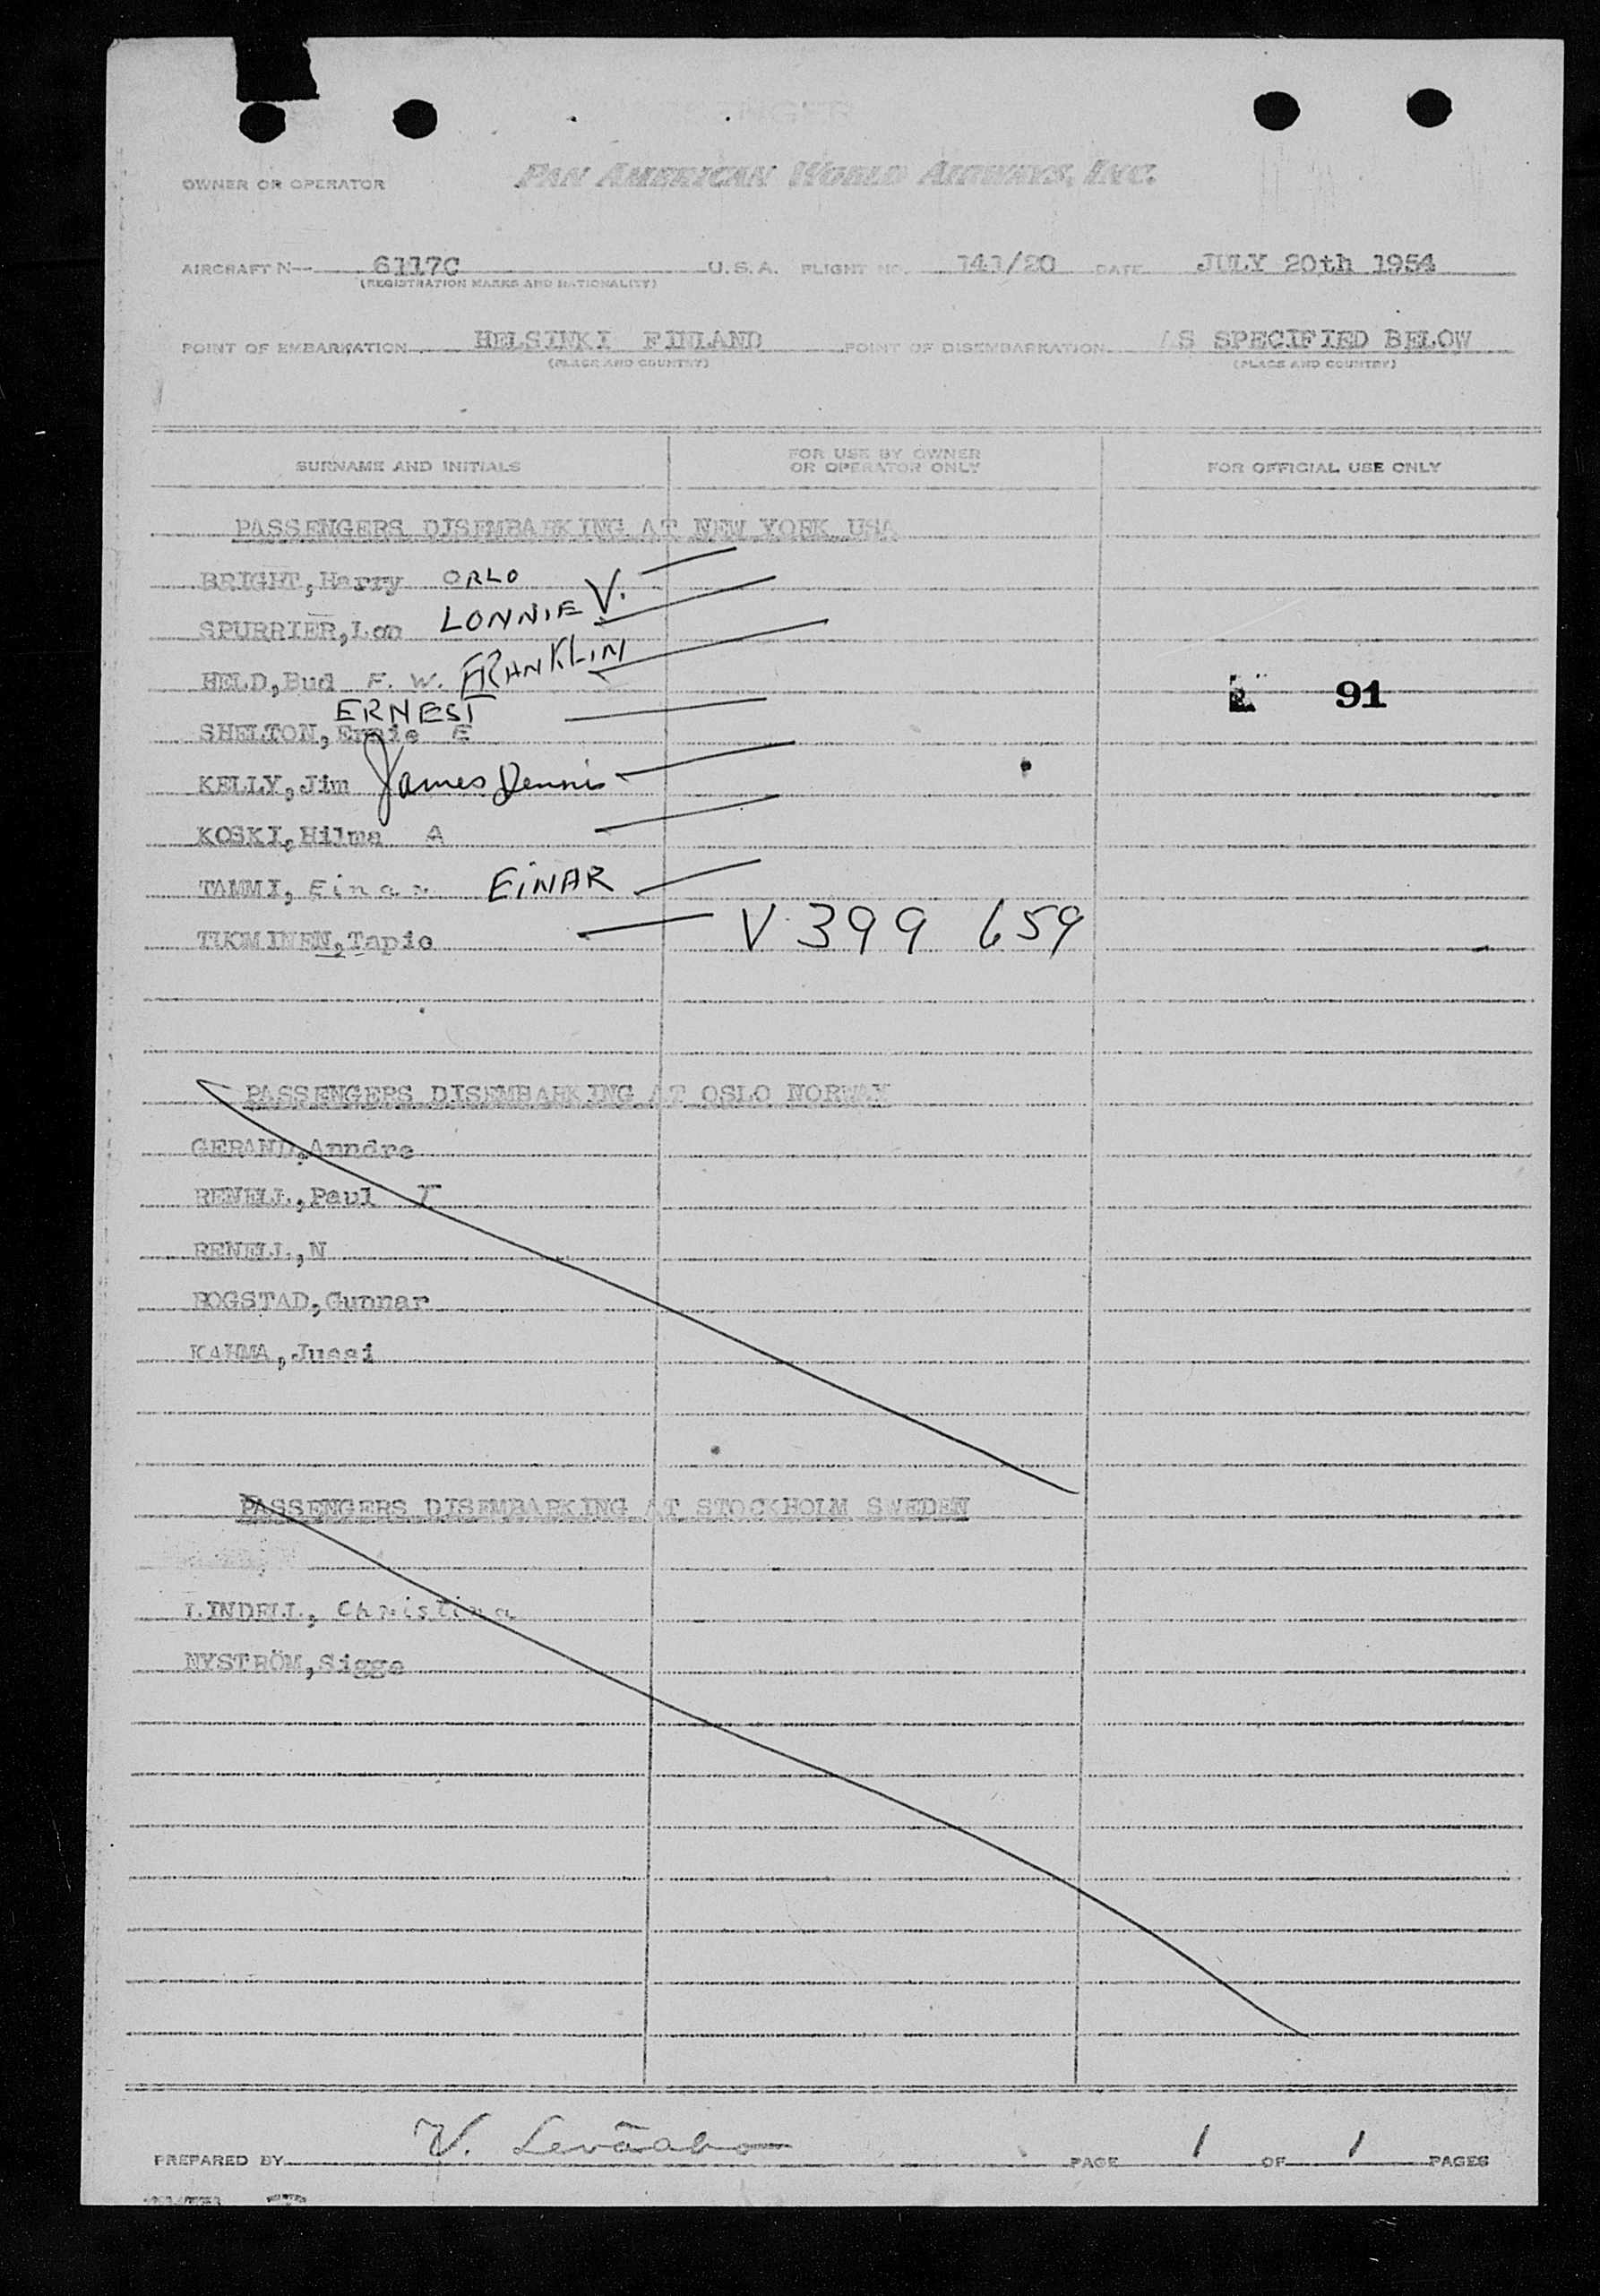 OWNER OR OPERATOR PAN AMERICAN WORLD AIRWAYS, INC.
AIRCRAFT N-- 6117C U.S.A. FLIGHT NO. 141/20 DATE JULY 20th 1954
(REGISTRATION MARKS AND NATIONALITY)
POINT OF EMBARKATION HELSINKI FINLAND POINT OF DISEMBARKATION AS SPECIFIED BELOW
(PLACE AND COUNTRY) (PLACE AND COUNTRY)
SURNAME AND INITIALS FOR USE BY OWNER OR OPERATOR ONLY FOR OFFICIAL USE ONLY
PASSENGERS DISEMBARKING AT NEW YORK USA
BRIGHT, Harry ORLO
SPURRIER, Lon LONNIE V.
HELD, Bud F. W. FRANKLIN
91
ERNEST
SHELTON, Ernie E
KELLY, Jim James Dennis
KOSKI, Hilma A
TAMMI, Einar EINAR
TUOMINEN, Tapio V 399 659
PASSENGERS DISEMBARKING AT OSLO NORWAY
GERAND, Anndre
RENELL, Paul T
RENELL, N
ROGSTAD, Gunnar
KAHMA, Jussi
PASSENGERS DISEMBARKING AT STOCKHOLM SWEDEN
LINDELL, Christina
NYSTRÖM, Sigge
PREPARED BY V. Leväaho PAGE 1 OF 1 PAGES